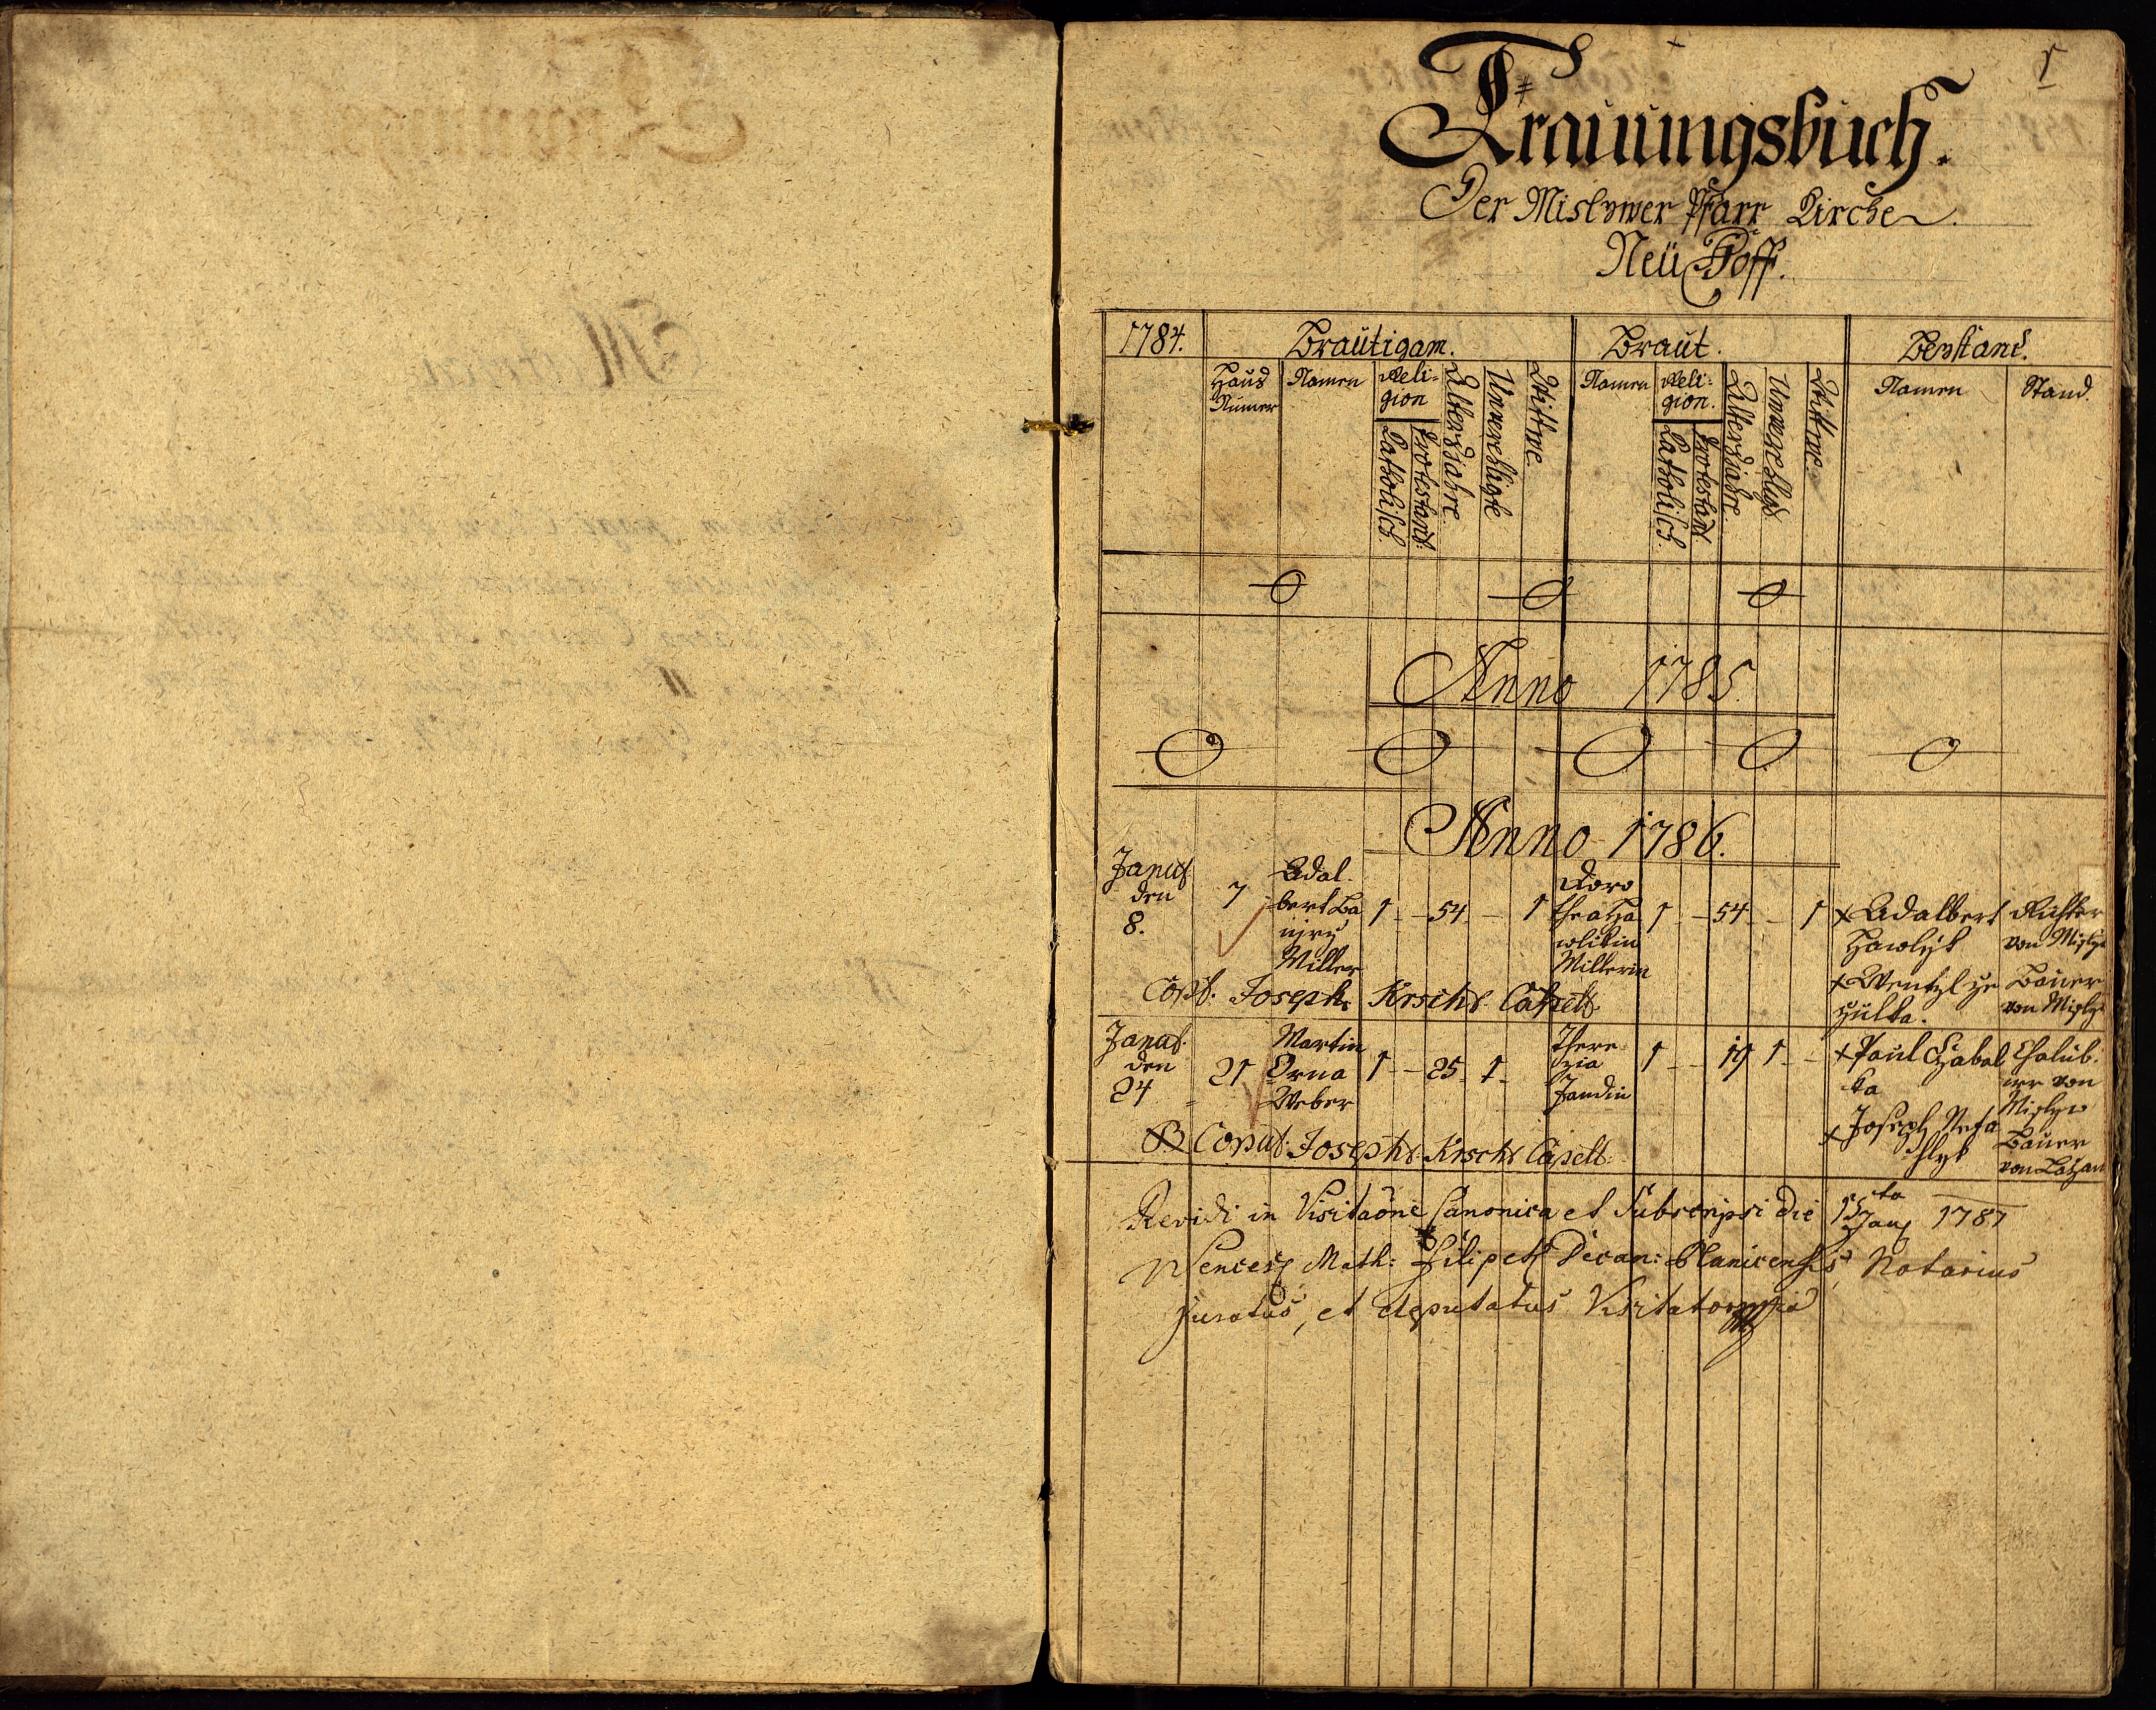 1
Trauungsbuch.
Der Mislywer Pfarr Kirche
Neü Hoff.
1784. Brautigam. Braut. Beystand.
Haus Numer Namen Religion Catholisch Protestant Altersjahre Unverehligte Wittwe Namen Religion. Catholisch Protestant Altersjahre Unverehligt Wittwe Namen Stand.
Anno 1785.
Anno 1786.
Janu
den
8.
7
Adal
bert Ba
Miller
1 - 54 - 1
Doro
thea Ha
wlikin
Millerin
1 - 54 - 1
x Adalbert
Hawlyk
Richter
von Misly
x Wentzl
Bauer
von Misly
Cop: Joseph Krsch Capell
Janu
den
24
21
Martin
Orna
Weber
1 - 25 1 -
There
zia
Jandin
1 - 19 1 -
x Paul Chabal
ka
Chalub
er von
Mislyw
x Joseph
Bauer
von
Copul: Joseph Krsch Capell:
Revidi in Visitaõne Canonica et Subscripsi die 15ta Jan 1787
Wences Math: Filipe Decan: Planicensis, Notarius
Juratus, et deputatus Visitator mpia